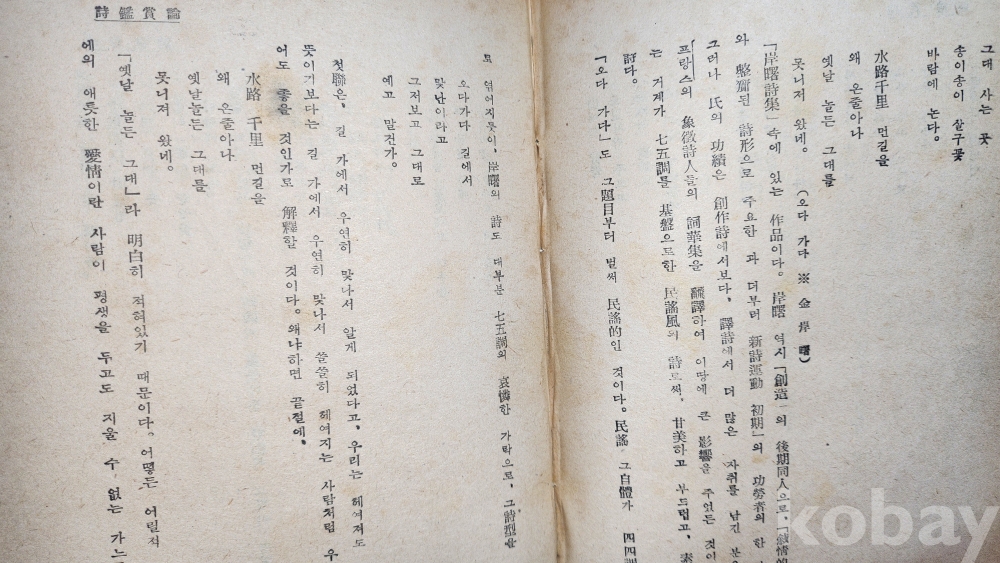 그대 사는 곳
송이송이 살구꽃
바람에 논다。
水路千里 먼길을
왜 온줄아나
옛날 놀든 그대를
못니저 왔네。
(오다 가다 ※ 金岸曙)
「岸曙詩集」속에 있는 作品이다。岸曙 역시「創造」의 後期同人으로、「感情的
와 整齊된 詩形으로 주요한 과 더부터 新詩運動 初期」의 功勞者의 한
그러나 氏의 功績은 創作詩에서보다、譯詩에서 더 많은 자취를 남긴 분
프랑스의 象徵詩人들의 詞華集을 飜譯하여 이땅에 큰 影響을 주었든 것이
는 거계가 七五調를 基盤으로한 民謠風의 詩로써、甘美하고 부드럽고、素
詩다。
「오다 가다」도 그題目부터 벌써 民謠的인 것이다。民謠 그自體가 四四調
엮어지듯이、岸曙의 詩도 대부분 七五調의 哀憐한 가락으로、그詩型을
오다가다 길에서
맞난이라고
그저보고 그대로
예고 말건가。
첫聯은、길 가에서 우연히 맞나서 알게 되었다고、우리는 헤여저도
뜻이기보다는 길 가에서 우연히 맞나서 쓸쓸히 헤여지는 사람처럼 우
어도 좋을 것인가로 解釋할 것이다。왜냐하면 끝절에、
水路 千里 먼길을
왜 온줄아나
옛날놀든 그대를
못니저 왔네。
「옛날 놀든 그대」라 明白히 적혀있기 때문이다。어떻든 어릴적
에의 애틋한 愛情이란 사람이 평생을 두고도 지울 수 없는 가느
詩鑑賞論
kobay